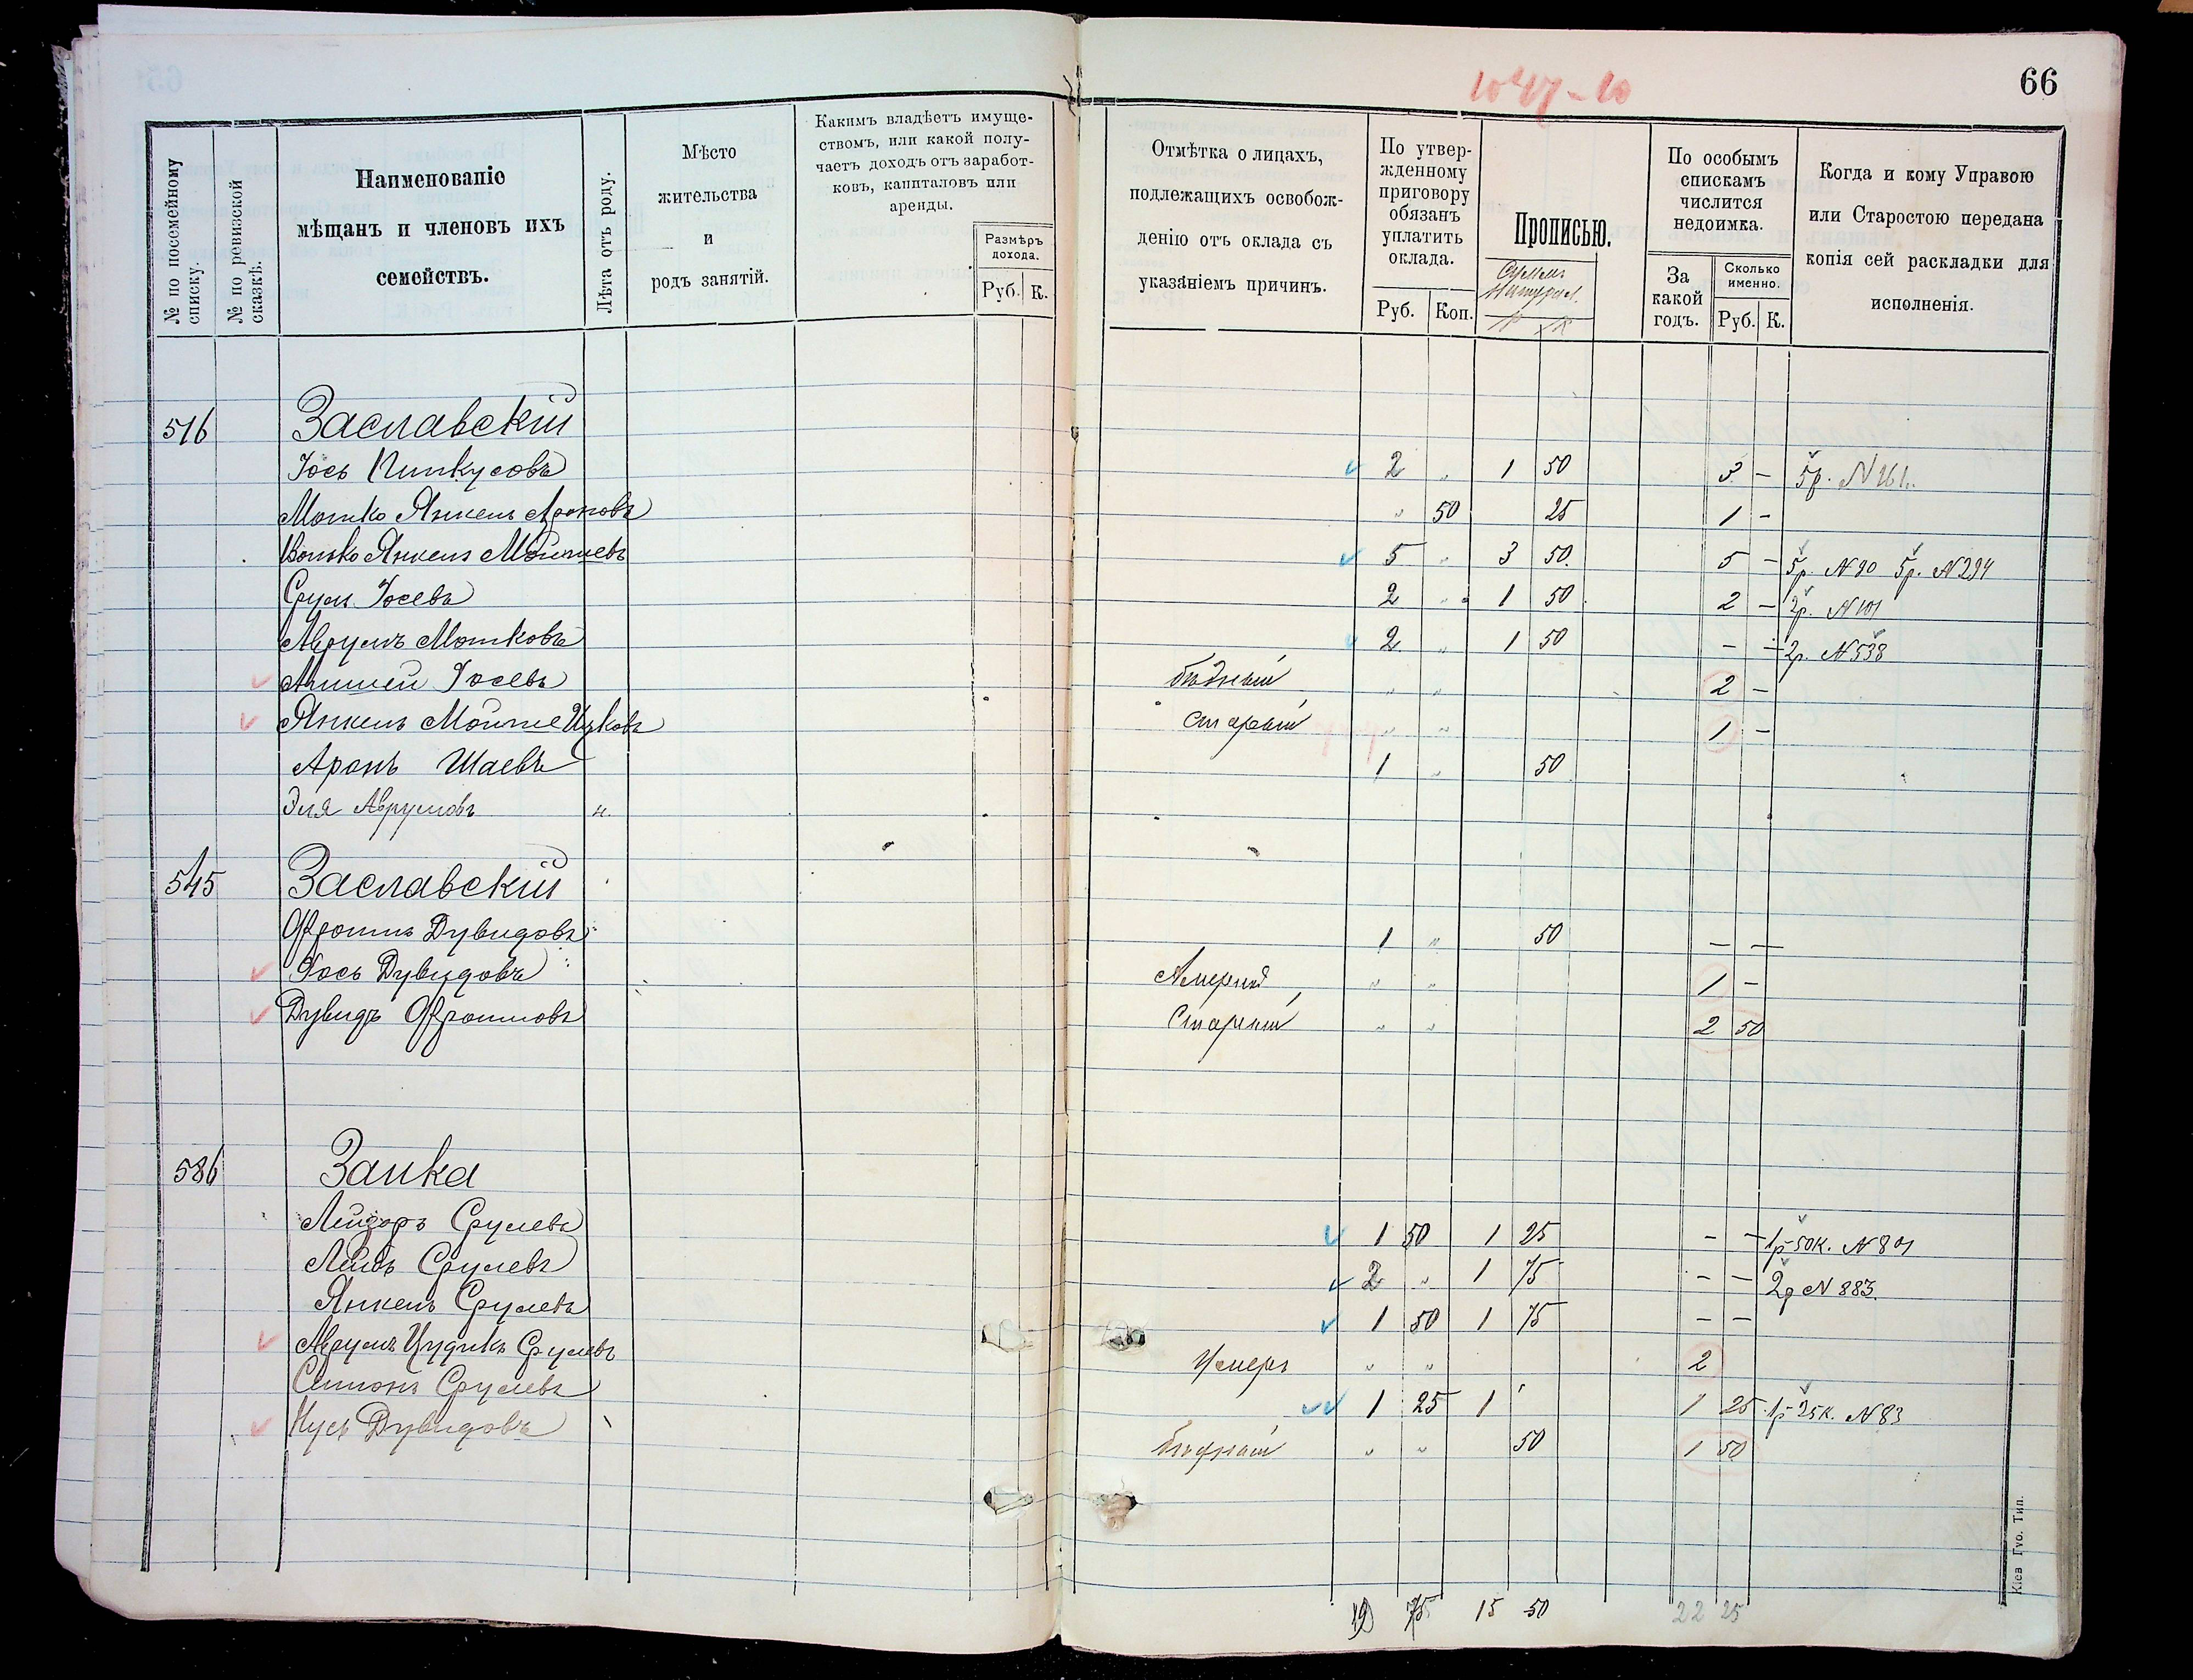 66
№ по посемейному списку.
№ по ревизской сказкѣ.
Наименованіе
мѣщанъ и членовъ ихъ
семействъ.
Лѣта отъ роду.
Мѣсто
жительства
и
родъ занятій.
Какимъ владѣетъ имуще-
ствомъ, или какой полу-
чаетъ доходъ отъ заработ-
ковъ, капиталовъ или
аренды.
Размѣръ
дохода.
Руб. К.
Отмѣтка о лицахъ,
подлежащихъ освобож-
денію отъ оклада съ
указаніемъ причинъ.
По утвер-
жденному
приговору
обязанъ
уплатить
оклада.
Руб. Коп.
Прописью.
Р К
По особымъ
спискамъ
числится
недоимка.
За
какой
годъ.
Сколько
именно.
Руб. К.
Когда и кому Управою
или Старостою передана
копія сей раскладки для
исполненія.
516 Заславскій
Іось Пинкусовъ 2 " 1 50 3 – 5р. №161.
Мотко Янкель Ароновъ " 50 25 1 –
Волько Янкель Мойшевъ 5 " 3 50. 5 – 5р. №90 5р. №294
Сруль Іосевъ 2 " 1 50 2 – 2р. №101
Аврумъ Мотковъ 2 " 1 50 – – 2р. №538
Аншель Іосевъ бѣдный " " 2 –
Янкель Мойше Ицковъ старый " " 1 –
Аронъ Шаевъ 1 " 50
Эля Аврумовъ н.
545 Заславскій
Фроимъ Дувидовъ 1 " 50 – –
Іось Дувидовъ " " 1 –
Дувидъ Фроимовъ Старый " " 2 50
586 Заика
Лейзоръ Срулевъ 1 50 1 25 – – 1р 50к. №801
Лейбъ Срулевъ 2 " 1 75 – – 2р №883.
Янкель Срулевъ 1 50 1 75 – –
Аврумъ Цудикъ Срулевъ Умеръ " " 2
Симонъ Срулевъ 1 25 1 1 25 1р 25к. №83
Нусь Дувидовъ бѣдный " " 50 1 50
19 75 15 50 22 25
Кіев Губ. Тип.